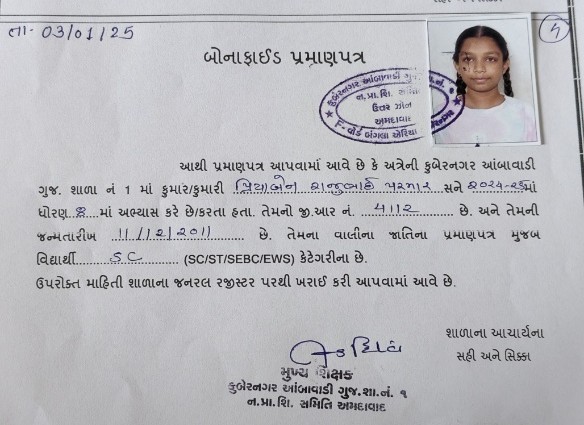 તા- 03/01/25
4
બોનાફાઈડ પ્રમાણપત્ર
કુબેરનગર આંબાવાડી ગુજ.
ન.પ્રા.શિ. સમિતિ
ઉત્તર ઝોન
અમદાવાદ
F-વોર્ડ બંગલા એરિયા
આથી પ્રમાણપત્ર આપવામાં આવે છે કે અત્રેની કુબેરનગર આંબાવાડી
ગુજ. શાળા નં 1 માં કુમાર/કુમારી પ્રિયાબેન રાજુભાઈ પરમાર સને ૨૦૨૪-૨૫માં
ધોરણ 8 માં અભ્યાસ કરે છે/કરતા હતા. તેમનો જી.આર નં. 4112 છે. અને તેમની
જન્મતારીખ 11/12/2011 છે. તેમના વાલીના જાતિના પ્રમાણપત્ર મુજબ
વિદ્યાર્થી SC (SC/ST/SEBC/EWS) કેટેગરીના છે.
ઉપરોક્ત માહિતી શાળાના જનરલ રજીસ્ટર પરથી ખરાઈ કરી આપવામાં આવે છે.
શાળાના આચાર્યના
સહી અને સિક્કા
મુખ્ય શિક્ષક
કુબેરનગર આંબાવાડી ગુજ.શા.નં. ૧
ન.પ્રા.શિ. સમિતિ અમદાવાદ